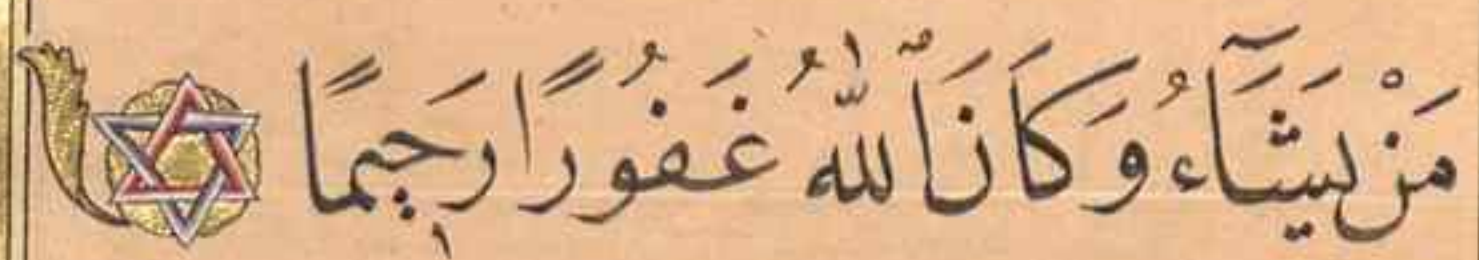 مَنْ يَشَآءُ وَكَانَ ٱللَّهُ غَفُورًا رَحِيمًا